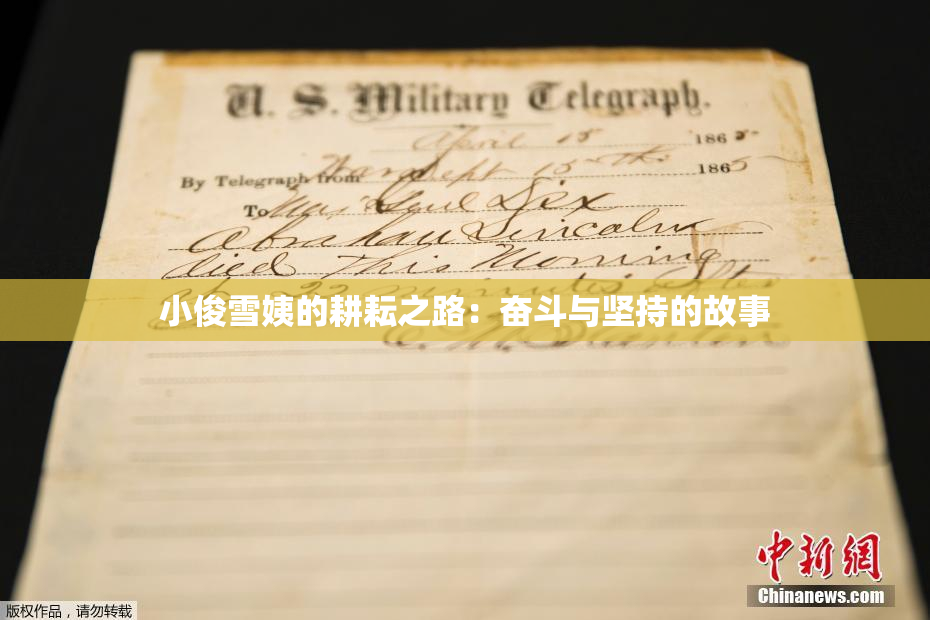 U. S. Military Telegraph.
April 15 1865
By Telegraph from War Dept 15th 1865
To Maj Genl Dix
Abraham Lincoln
died This Morning
22 minutes after
小俊雪姨的耕耘之路：奋斗与坚持的故事
E. M. Stanton
中新网
Chinanews.com
版权作品，请勿转载